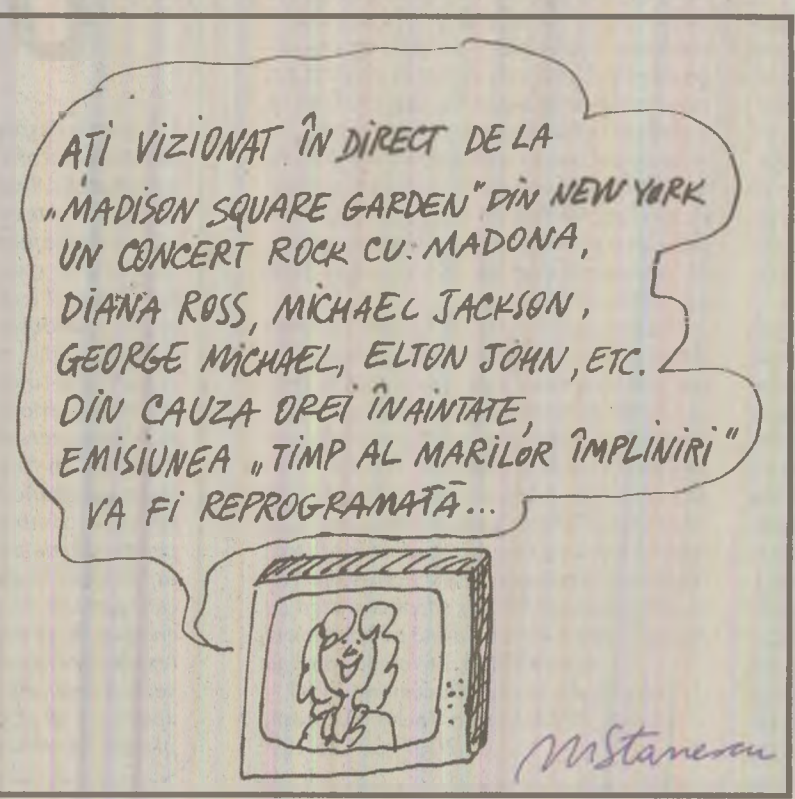 AȚI VIZIONAT ÎN DIRECT DE LA
„MADISON SQUARE GARDEN" DIN NEW YORK
UN CONCERT ROCK CU. MADONA,
DIANA ROSS, MICHAEL JACKSON,
GEORGE MICHAEL, ELTON JOHN, ETC.
DIN CAUZA OREI ÎNAINTATE,
EMISIUNEA „TIMP AL MARILOR ÎMPLINIRI"
VA FI REPROGRAMATĂ...
MStanescu